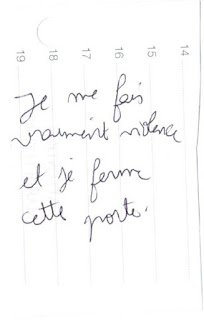 19 18 17 16 15 14
Je me fais
vraiment violence
et je ferme
cette porte.